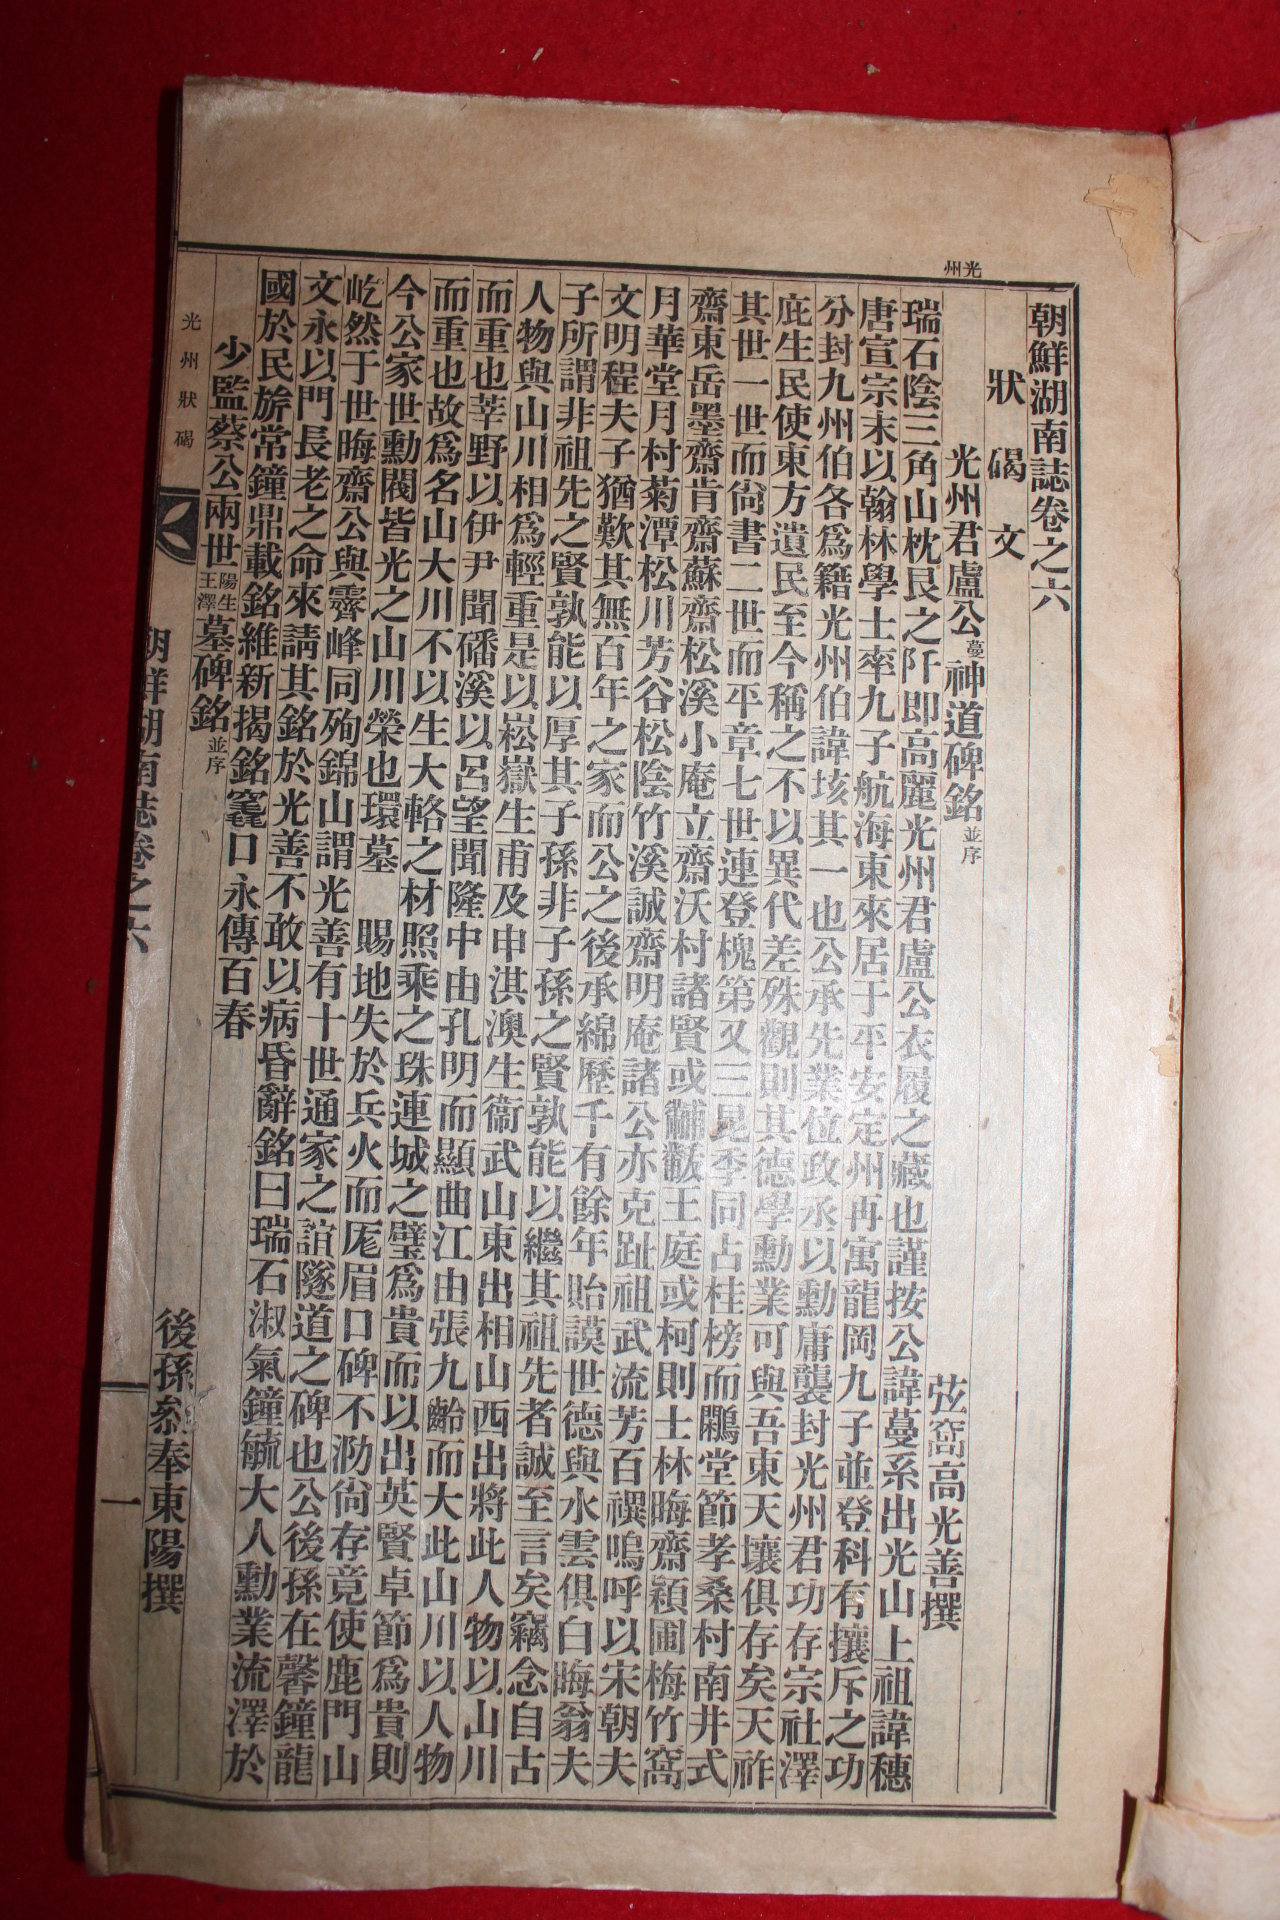 光州
朝鮮湖南誌卷之六
狀碣文
光州君盧公蔓神道碑銘並序 弦窩高光善撰
瑞石陰三角山枕艮之阡即高麗光州君盧公衣履之藏也謹按公諱蔓系出光山上祖諱穗
唐宣宗末以翰林學士率九子航海東來居于平安定州再寓龍岡九子並登科有攘斥之功
分封九州伯各爲籍光州伯諱垓其一也公承先業位政丞以勳庸襲封光州君功存宗社澤
庇生民使東方遺民至今稱之不以異代差殊觀則其德學勳業可與吾東天壤俱存矣天祚
其世一世而尙書二世而平章七世連登槐第又三昆季同占桂榜而鸍堂節孝桑村南井式
齋東岳墨齋肯齋蘇齋松溪小庵立齋沃村諸賢或黼黻王庭或柯則士林晦齋穎圃梅竹窩
月華堂月村菊潭松川芳谷松陰竹溪誠齋明庵諸公亦克趾祖武流芳百禩嗚呼以宋朝夫
文明程夫子猶歎其無百年之家而公之後承綿歷千有餘年貽謨世德與水雲俱白晦翁夫
子所謂非祖先之賢孰能以厚其子孫非子孫之賢孰能以繼其祖先者誠至言矣竊念自古
人物與山川相爲輕重是以崧嶽生甫及申淇澳生衞武山東出相山西出將此人物以山川
而重也莘野以伊尹聞磻溪以呂望聞隆中由孔明而顯曲江由張九齡而大此山川以人物
而重也故爲名山大川不以生大輅之材照乘之珠連城之璧爲貴而以出英賢卓節爲貴則
今公家世勳閥皆光之山川榮也環墓 賜地失於兵火而厖眉口碑不泐尙存竟使鹿門山
屹然于世晦齋公與霽峰同殉錦山謂光善有十世通家之誼隧道之碑也公後孫在馨鐘龍
文永以門長老之命來請其銘於光善不敢以病昏辭銘曰瑞石淑氣鐘毓大人勳業流澤於
國於民旂常鐘鼎載銘維新揭銘窀口永傳百春
少監蔡公兩世陽生王澤墓碑銘並序 後孫參奉東陽撰
光州狀碣
朝鮮湖南誌卷之六
一